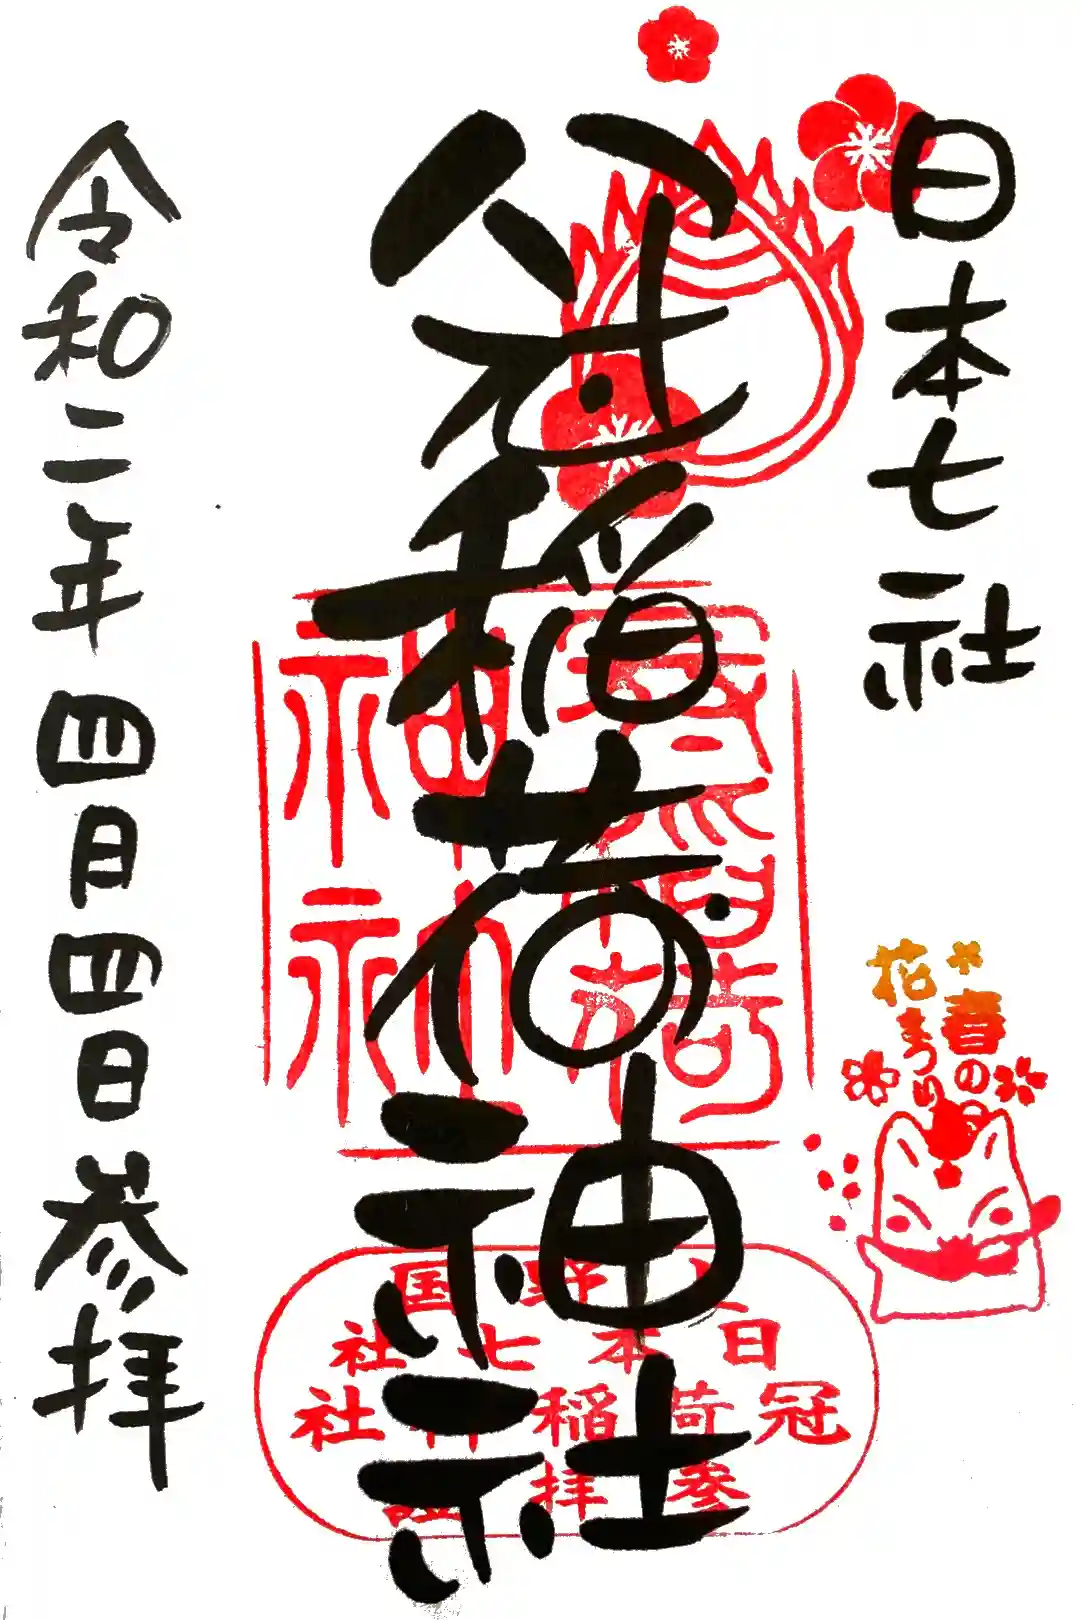 日本七社
冠稲荷神社
令和二年四月四日参拝
春の
花まつり
上野国
日本七社
冠荷稲神社
参拝証